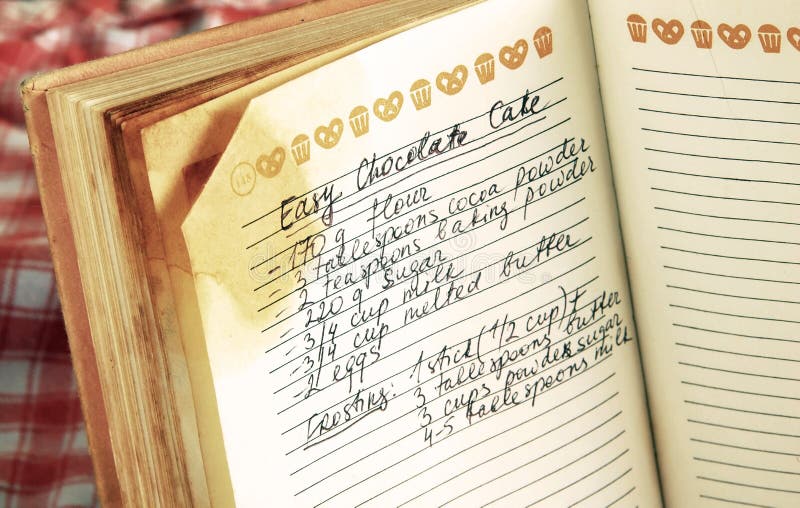 Easy Chocolate Cake
- 170 g flour
- 3 tablespoons cocoa powder
- 2 teaspoons baking powder
- 220 g sugar
- 3/4 cup milk
- 3/4 cup melted butter
- 2 eggs
Frosting: 1 stick (1/2 cup) +
3 tablespoons butter
3 cups powder sugar
4-5 tablespoons milk